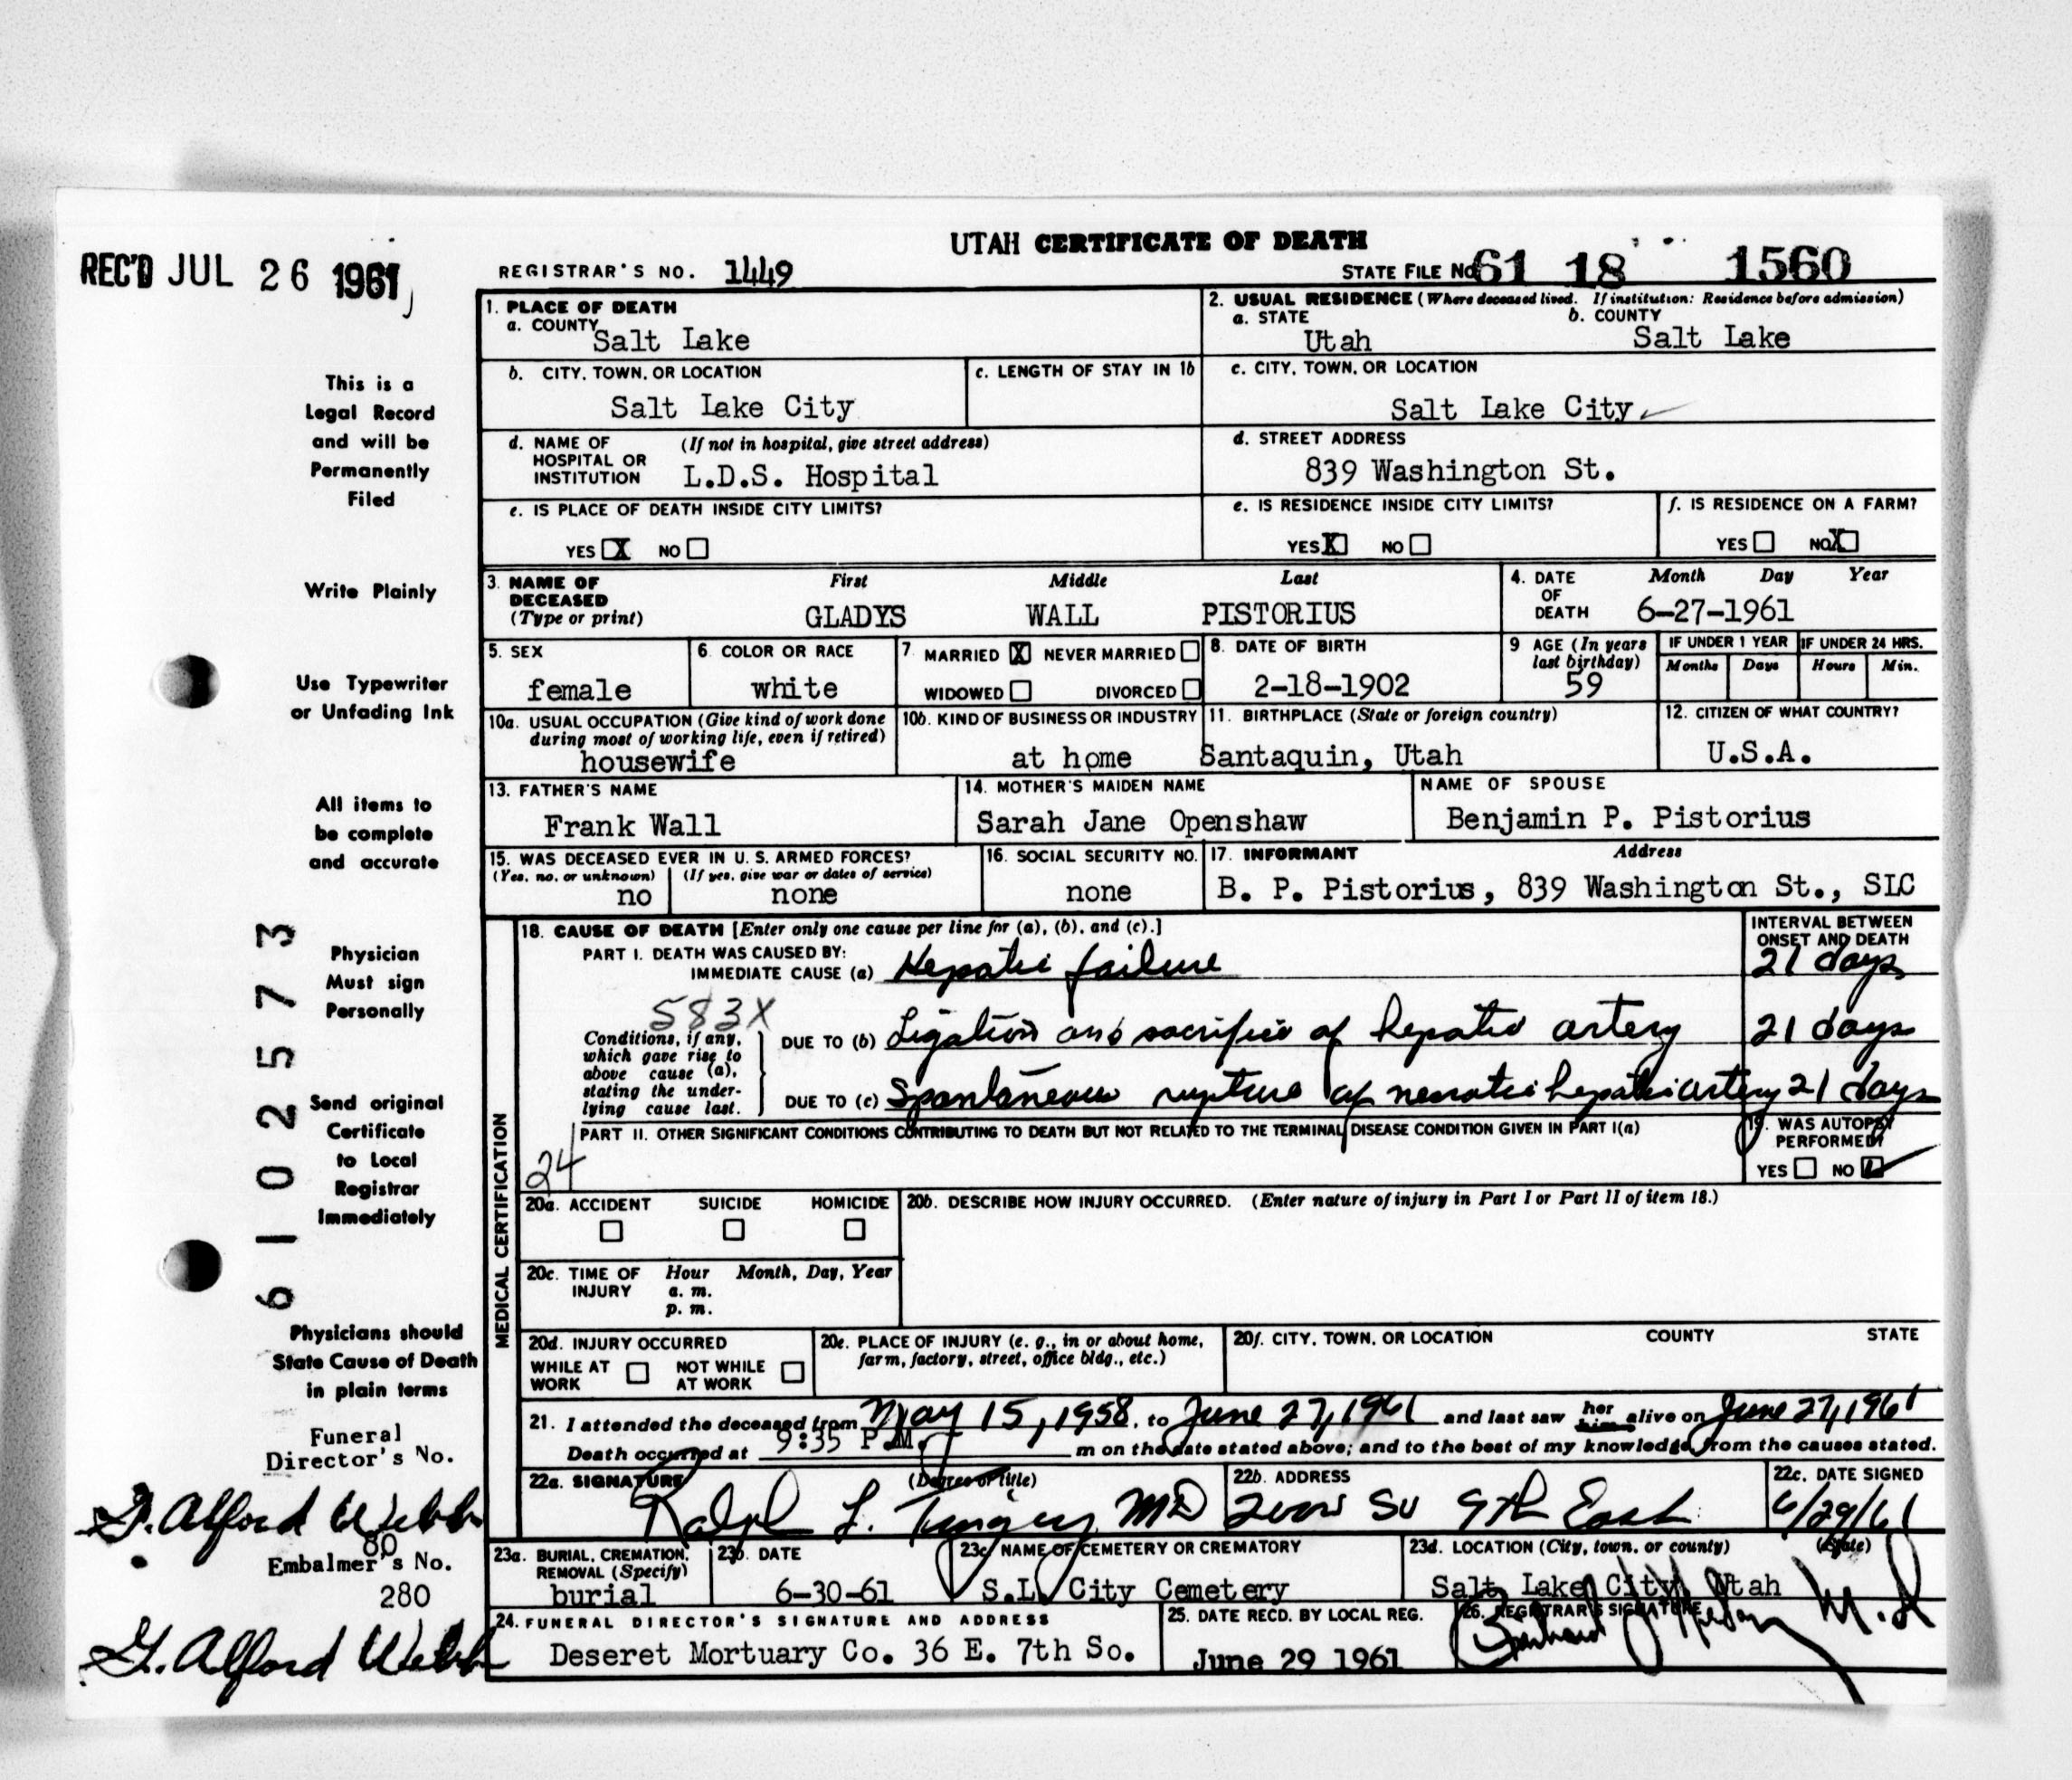 UTAH CERTIFICATE OF DEATH
REC'D JUL 26 1961
REGISTRAR'S NO. 1449
STATE FILE NO. 61 18 1560
1. PLACE OF DEATH
a. COUNTY Salt Lake
2. USUAL RESIDENCE (Where deceased lived. If institution: Residence before admission)
a. STATE Utah b. COUNTY Salt Lake
b. CITY, TOWN, OR LOCATION Salt Lake City
c. LENGTH OF STAY IN 1b
c. CITY, TOWN, OR LOCATION Salt Lake City
d. NAME OF HOSPITAL OR INSTITUTION (If not in hospital, give street address) L.D.S. Hospital
d. STREET ADDRESS 839 Washington St.
e. IS PLACE OF DEATH INSIDE CITY LIMITS?
YES X NO
e. IS RESIDENCE INSIDE CITY LIMITS?
YES X NO
f. IS RESIDENCE ON A FARM?
YES NO X
3. NAME OF DECEASED (Type or print)
First Middle Last
GLADYS WALL PISTORIUS
4. DATE OF DEATH Month Day Year
6-27-1961
5. SEX female
6. COLOR OR RACE white
7. MARRIED X NEVER MARRIED
WIDOWED DIVORCED
8. DATE OF BIRTH 2-18-1902
9 AGE (In years last birthday) 59
IF UNDER 1 YEAR Months Days
IF UNDER 24 HRS. Hours Min.
10a. USUAL OCCUPATION (Give kind of work done during most of working life, even if retired) housewife
10b. KIND OF BUSINESS OR INDUSTRY at home
11. BIRTHPLACE (State or foreign country) Santaquin, Utah
12. CITIZEN OF WHAT COUNTRY? U.S.A.
13. FATHER'S NAME Frank Wall
14. MOTHER'S MAIDEN NAME Sarah Jane Openshaw
NAME OF SPOUSE Benjamin P. Pistorius
15. WAS DECEASED EVER IN U. S. ARMED FORCES?
(Yes, no, or unknown) no (If yes, give war or dates of service) none
16. SOCIAL SECURITY NO. none
17. INFORMANT Address
B. P. Pistorius, 839 Washington St., SLC
MEDICAL CERTIFICATION
18. CAUSE OF DEATH [Enter only one cause per line for (a), (b), and (c).]
INTERVAL BETWEEN ONSET AND DEATH
PART I. DEATH WAS CAUSED BY:
IMMEDIATE CAUSE (a) Hepatic failure 21 days
583X
Conditions, if any, which gave rise to above cause (a), stating the underlying cause last.
DUE TO (b) Ligation and sacrifice of hepatic artery 21 days
DUE TO (c) Spontaneous rupture of necrotic hepatic artery 21 days
PART II. OTHER SIGNIFICANT CONDITIONS CONTRIBUTING TO DEATH BUT NOT RELATED TO THE TERMINAL DISEASE CONDITION GIVEN IN PART I(a)
24
19. WAS AUTOPSY PERFORMED?
YES NO ✓
20a. ACCIDENT SUICIDE HOMICIDE
20b. DESCRIBE HOW INJURY OCCURRED. (Enter nature of injury in Part I or Part II of item 18.)
20c. TIME OF INJURY Hour Month, Day, Year
a. m.
p. m.
20d. INJURY OCCURRED
WHILE AT WORK NOT WHILE AT WORK
20e. PLACE OF INJURY (e. g., in or about home, farm, factory, street, office bldg., etc.)
20f. CITY, TOWN, OR LOCATION COUNTY STATE
21. I attended the deceased from May 15, 1958, to June 27, 1961 and last saw her him alive on June 27, 1961
Death occurred at 9:35 P.M. m on the date stated above; and to the best of my knowledge, from the causes stated.
22a. SIGNATURE (Degree or title)
Ralph L. Tingey MD
22b. ADDRESS
So 9th East
22c. DATE SIGNED 6/29/61
23a. BURIAL, CREMATION, REMOVAL (Specify) burial
23b. DATE 6-30-61
23c. NAME OF CEMETERY OR CREMATORY S.L. City Cemetery
23d. LOCATION (City, town, or county) (State)
Salt Lake City, Utah
24. FUNERAL DIRECTOR'S SIGNATURE AND ADDRESS
Deseret Mortuary Co. 36 E. 7th So.
25. DATE RECD. BY LOCAL REG.
June 29 1961
26. REGISTRAR'S SIGNATURE
M.D
This is a
Legal Record
and will be
Permanently
Filed
Write Plainly
Use Typewriter
or Unfading Ink
All items to
be complete
and accurate
Physician
Must sign
Personally
Send original
Certificate
to Local
Registrar
Immediately
Physicians should
State Cause of Death
in plain terms
6102573
Funeral
Director's No.
G. Alford Webb
80
Embalmer's No.
280
G. Alford Webb